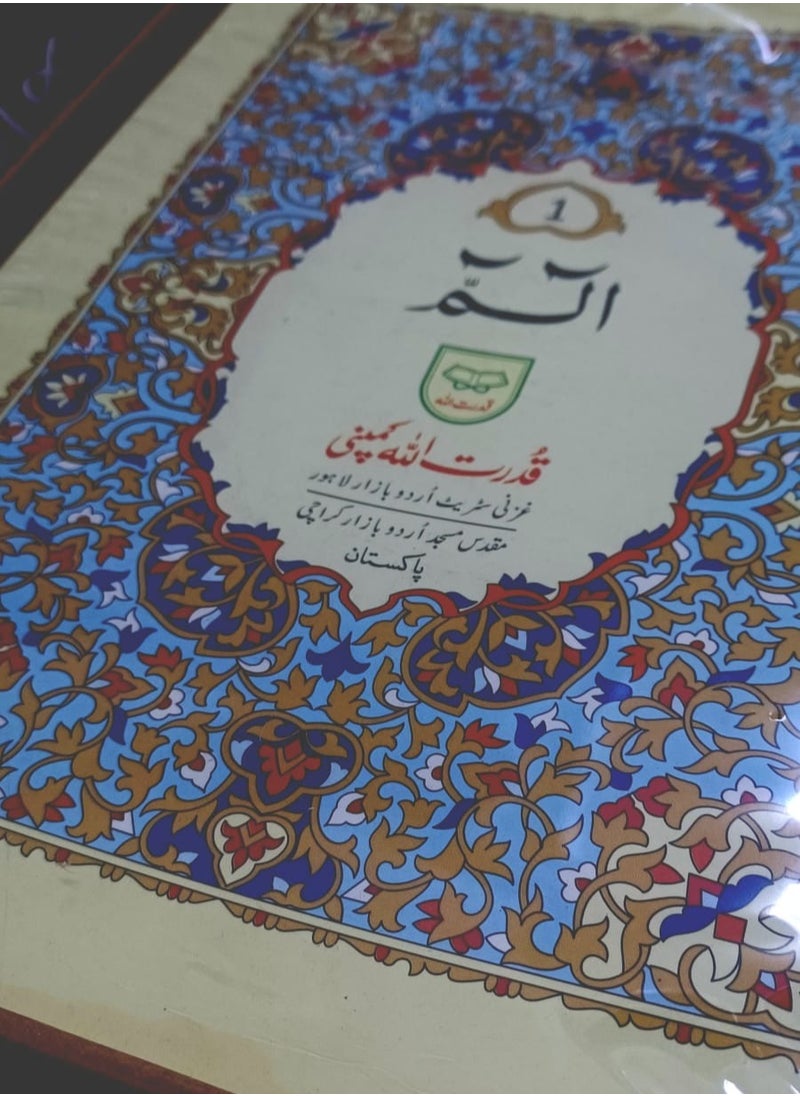 1
الٓمّٓ
قدرت اللہ
قُدرت اللہ کمپنی
غزنی سٹریٹ اُردو بازار لاہور
مقدس مسجد اُردو بازار کراچی
پاکستان